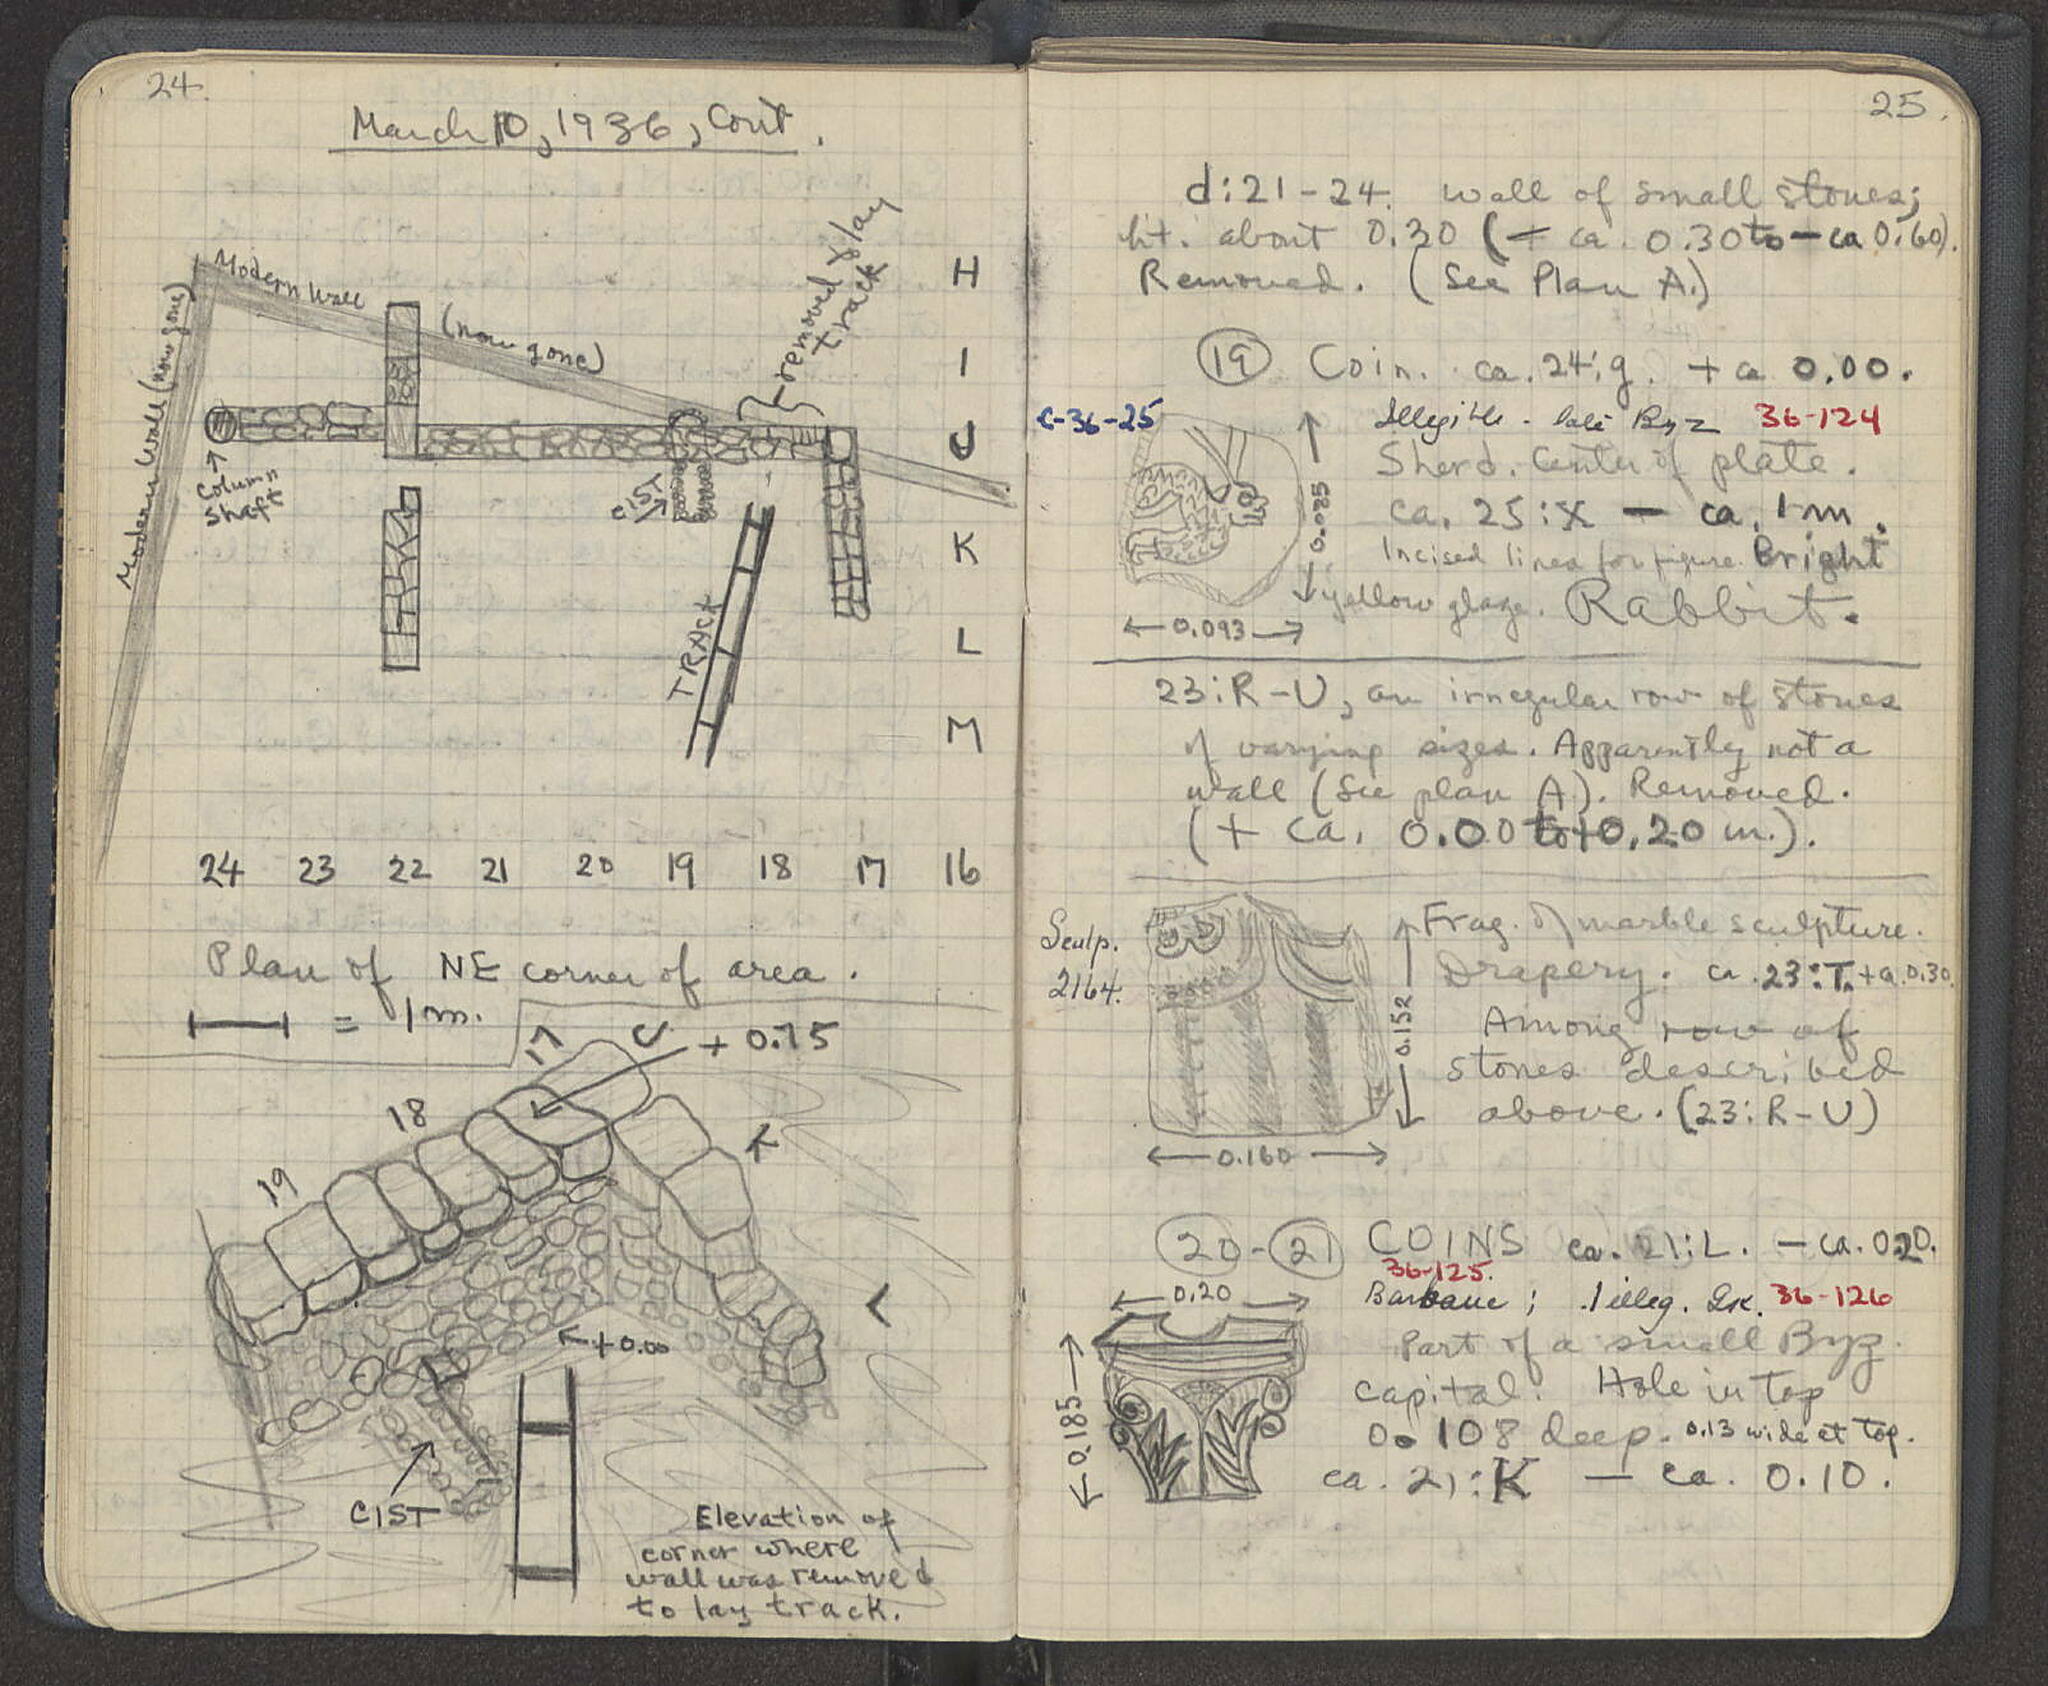 24.
March 10, 1936, Cont.
Modern Wall
(now gone)
Modern Wall (now gone)
removed to lay
track
H
I
J
K
L
M
Column
Shaft
CIST
TRACK
24 23 22 21 20 19 18 17 16
Plan of NE corner of area.
= 1m.
17
J
+ 0.75
18
K
19
L
+0.00
CIST
Elevation of
corner where
wall was removed
to lay track.
25.
d:21-24. wall of small stones;
ht. about 0.30 (- ca. 0.30 to - ca 0.60).
Removed. (See Plan A.)
19 Coin. ca. 24:g. + ca 0.00.
Illegible - late Byz 36-124
C-36-25
Sherd. Center of plate.
ca. 25:X - ca. 1m.
Incised lines for figure. Bright
yellow glaze. Rabbit.
0.085
0.093
23:R-U, an irregular row of stones
of varying sizes. Apparently not a
wall (See plan A). Removed.
(+ ca. 0.00 to +0.20 m.).
Sculp.
2164.
Frag. of marble sculpture.
Drapery. ca. 23:T. + ca. 0.30.
Among row of
stones described
above. (23:R-U)
0.152
0.160
20-21 COINS ca. 21:L. - ca. 0.20.
36-125.
Barbaric; 1 illeg. Gk. 36-126
0.20
0.185
Part of a small Byz.
capital. Hole in top
0.108 deep. 0.13 wide at top.
ca. 21:K - ca. 0.10.